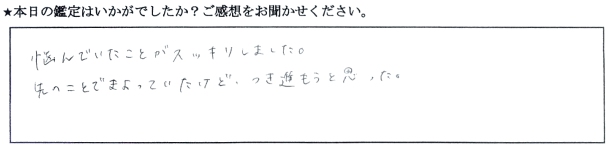 ★本日の鑑定はいかがでしたか？ご感想をお聞かせください。
悩んでいたことがスッキリしました。
先のことでまよっていたけど、つき進もうと思った。